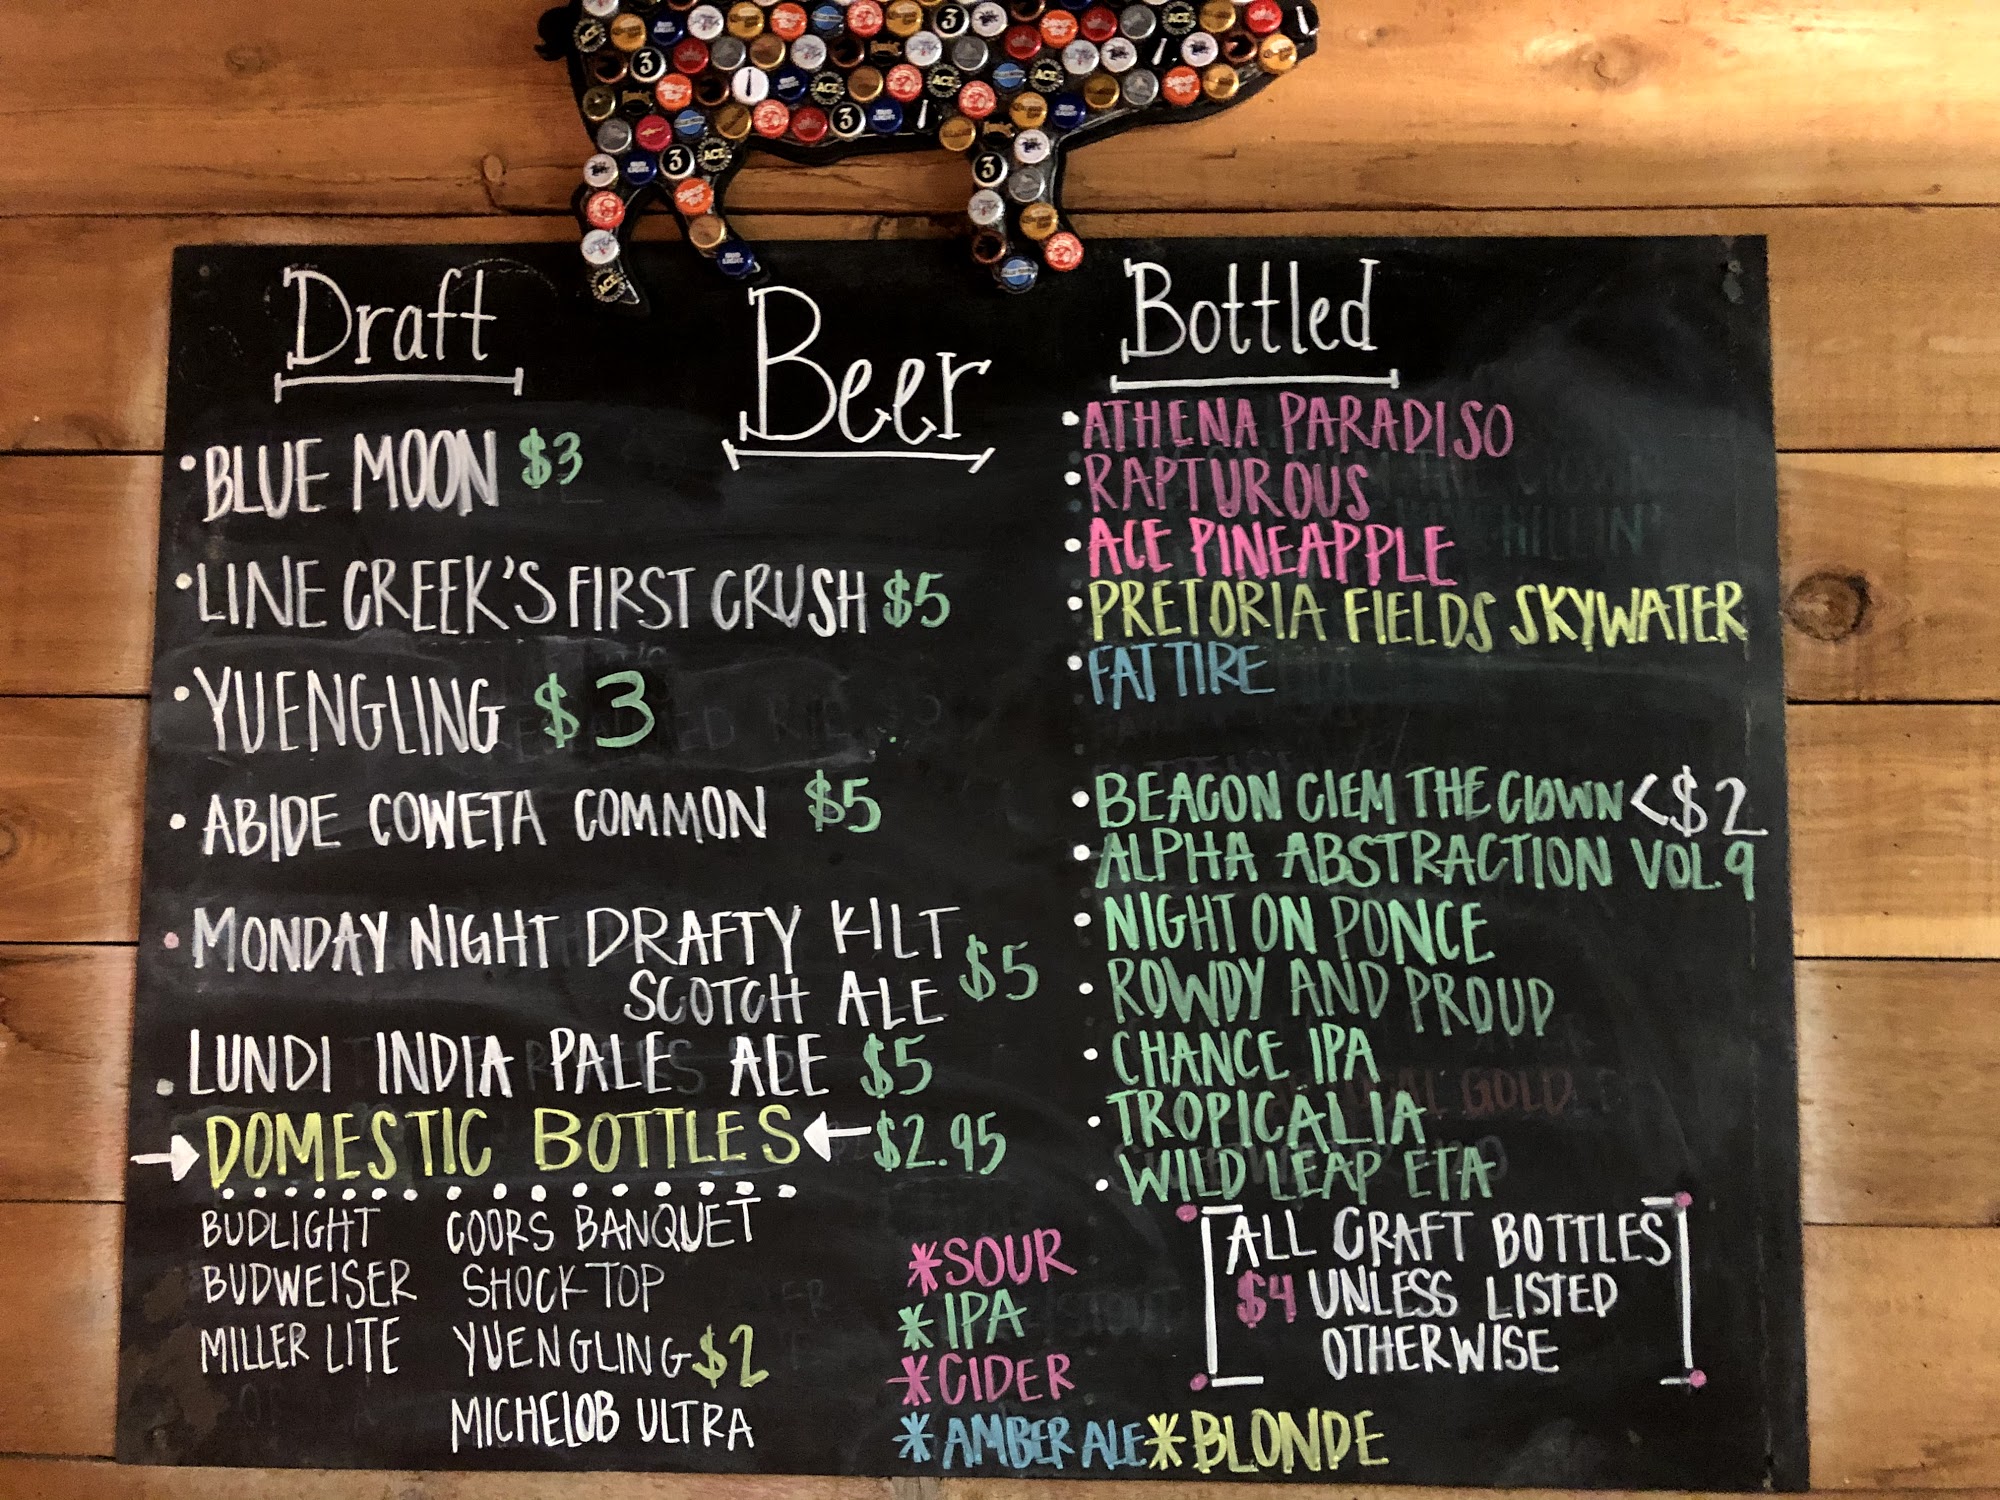 Draft
Beer
Bottled
• BLUE MOON $3
• LINE CREEK'S FIRST CRUSH $5
• YUENGLING $3
• ABIDE COWETA COMMON $5
• MONDAY NIGHT DRAFTY KILT
SCOTCH ALE $5
• LUNDI INDIA PALE ALE $5
DOMESTIC BOTTLES $2.95
BUDLIGHT
BUDWEISER
MILLER LITE
COORS BANQUET
SHOCK TOP
YUENGLING $2
MICHELOB ULTRA
• ATHENA PARADISO
• RAPTUROUS
• ACE PINEAPPLE
• PRETORIA FIELDS SKYWATER
• FAT TIRE
• BEACON CLEM THE CLOWN <$2
• ALPHA ABSTRACTION VOL. 9
• NIGHT ON PONCE
• ROWDY AND PROUD
• CHANCE IPA
• TROPICALIA
• WILD LEAP ETA
ALL CRAFT BOTTLES
$4 UNLESS LISTED
OTHERWISE
*SOUR
*IPA
*CIDER
*AMBER ALE *BLONDE